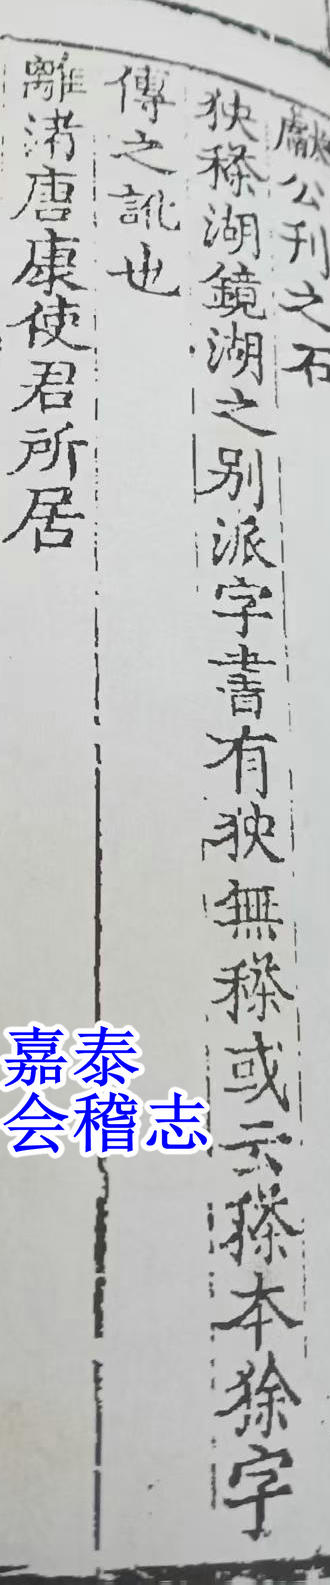 獻公刊之石
狹𤟠湖鏡湖之别派字書有狹無𤟠或云𤟠本狳字
傳之訛也
離渚唐康使君所居
嘉泰
会稽志